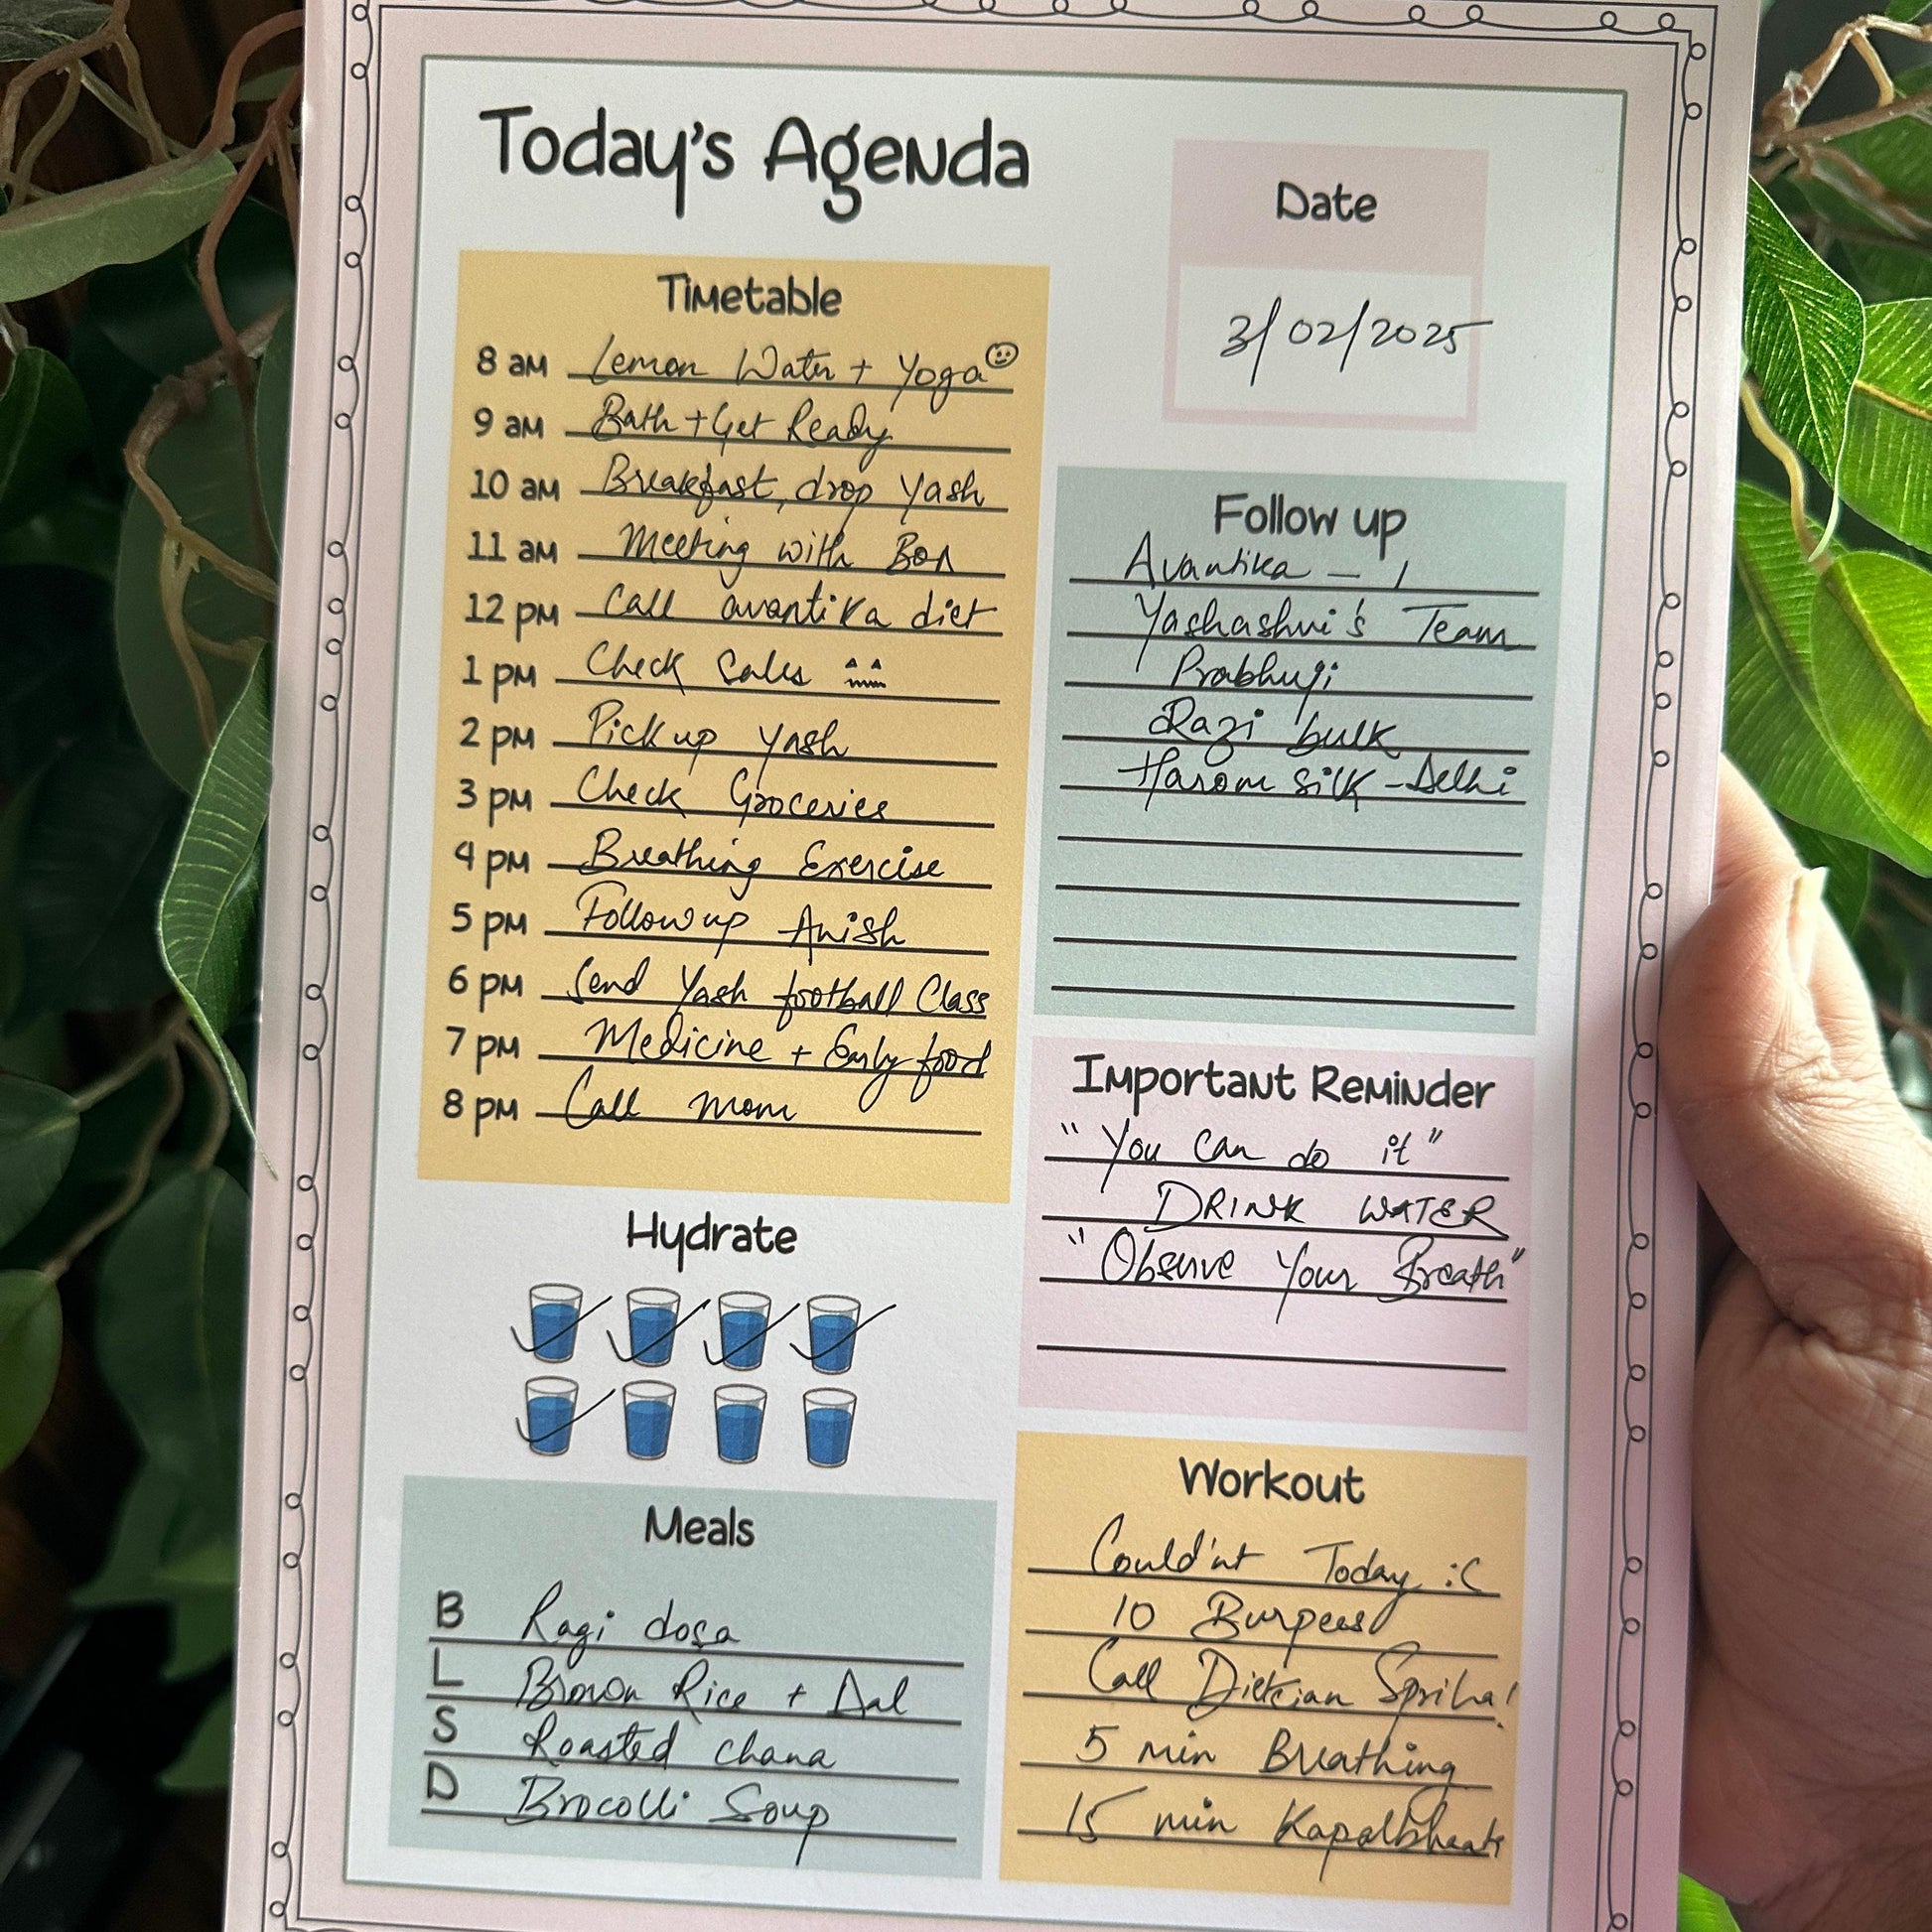 Today's Agenda
Date
3/02/2025
Timetable
8 am Lemon Water + Yoga
9 am Bath + Get Ready
10 am Breakfast, drop Yash
11 am Meeting with
12 pm Call avantika diet
1 pm Check Sales
2 pm Pick up Yash
3 pm Check Groceries
4 pm Breathing Exercise
5 pm Follow up Anish
6 pm Send Yash football Class
7 pm Medicine + Early food
8 pm Call mom
Follow up
Avantika - 1
Yashashvi's Team
Prabhuji
bulk
silk - Delhi
Important Reminder
"You Can do it"
DRINK WATER
"Observe Your Breath"
Hydrate
Meals
B Ragi dosa
L Brown Rice + Dal
S Roasted chana
D Brocolli Soup
Workout
Could'nt Today :(
10 Burpees
Call Dietician Spriha!
5 min Breathing
15 min Kapalbhaati